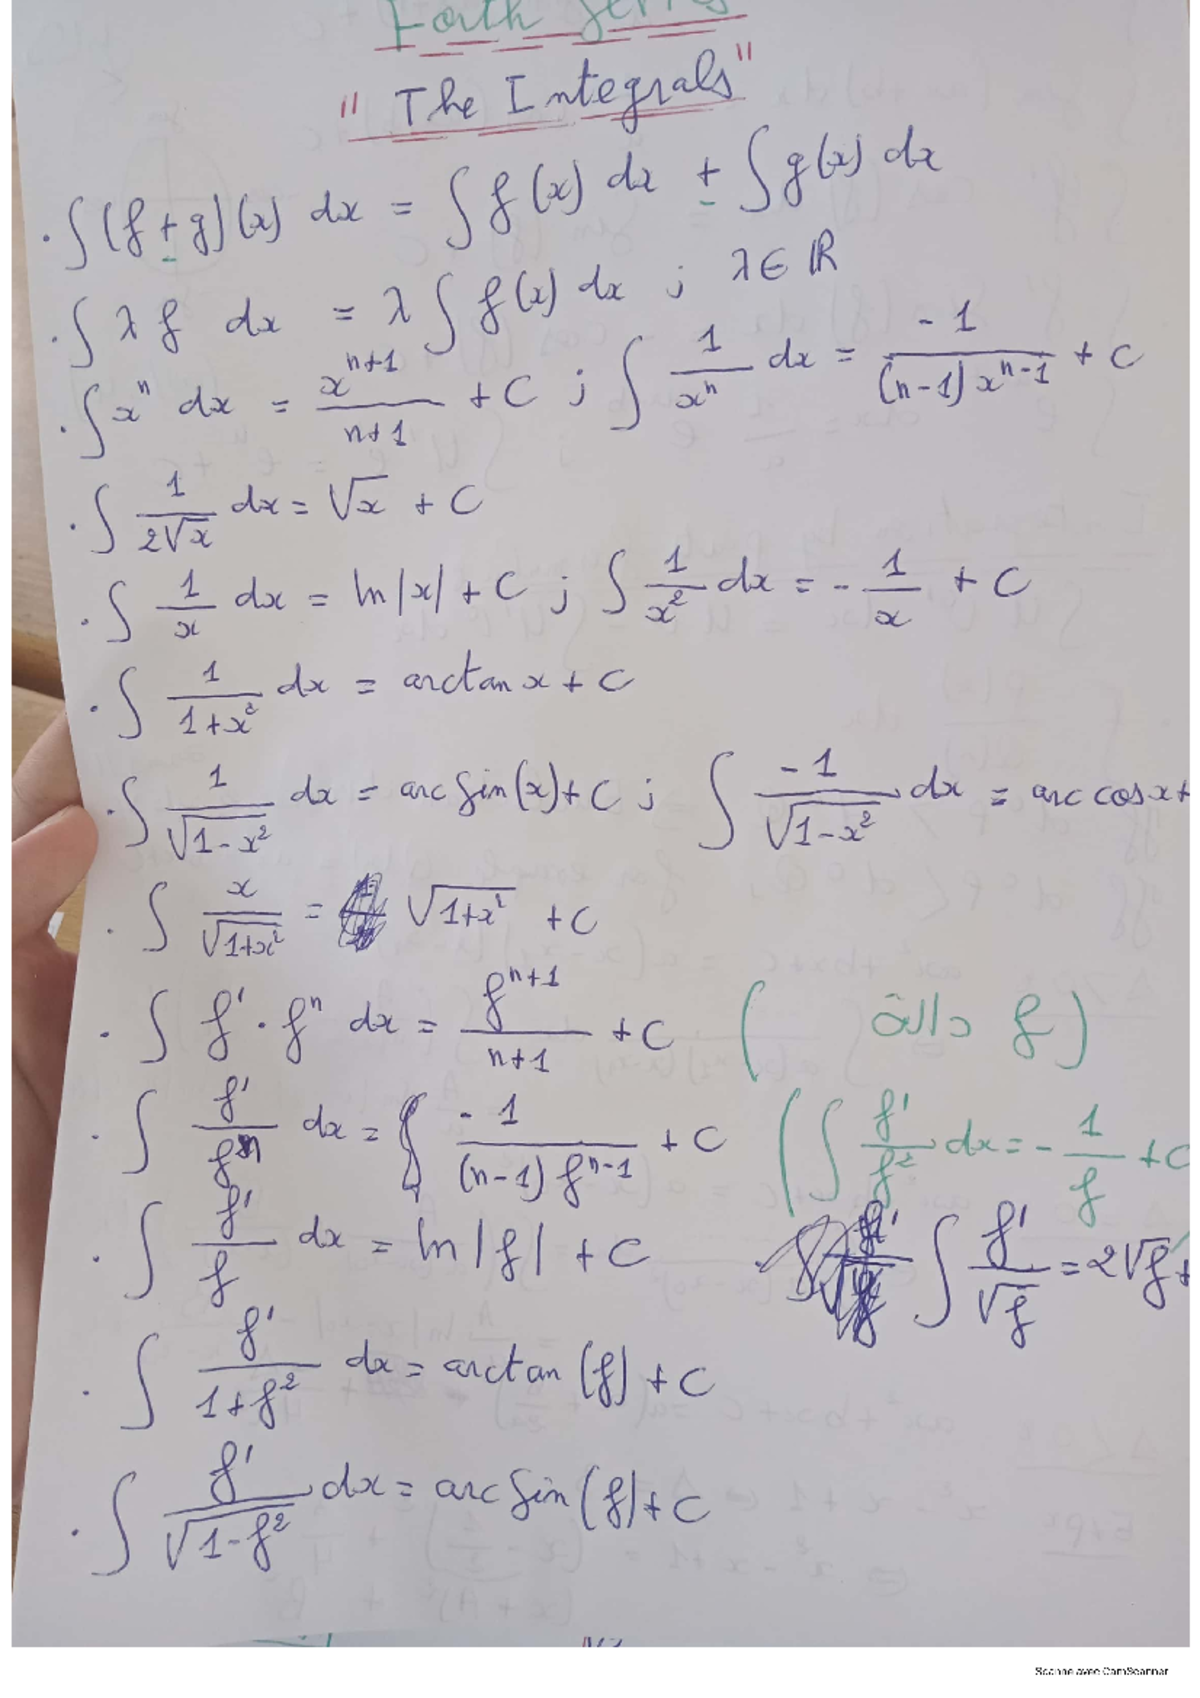 Forth Series
" The Integrals "
. ∫ (f ± g)(x) dx = ∫ f(x) dx ± ∫ g(x) dx
. ∫ λ f dx = λ ∫ f(x) dx ; λ ∈ ℝ
. ∫ xⁿ dx = xⁿ⁺¹/(n+1) + C ; ∫ 1/xⁿ dx = -1/((n-1) xⁿ⁻¹) + C
. ∫ 1/(2√x) dx = √x + C
. ∫ 1/x dx = ln|x| + C ; ∫ 1/x² dx = - 1/x + C
. ∫ 1/(1+x²) dx = arctan x + C
. ∫ 1/√(1-x²) dx = arc sin(x) + C ; ∫ -1/√(1-x²) dx = arc cos x +
. ∫ x/√(1+x²) = √(1+x²) + C
. ∫ f' . fⁿ dx = fⁿ⁺¹/(n+1) + C ( f دالة )
. ∫ f'/fⁿ dx = -1/((n-1) fⁿ⁻¹) + C ( ∫ f'/f² dx = - 1/f + C
. ∫ f'/f dx = ln|f| + C . ∫ f'/√f = 2√f +
. ∫ f'/(1+f²) dx = arctan (f) + C
. ∫ f'/√(1-f²) dx = arc sin (f) + C
Scanné avec CamScanner